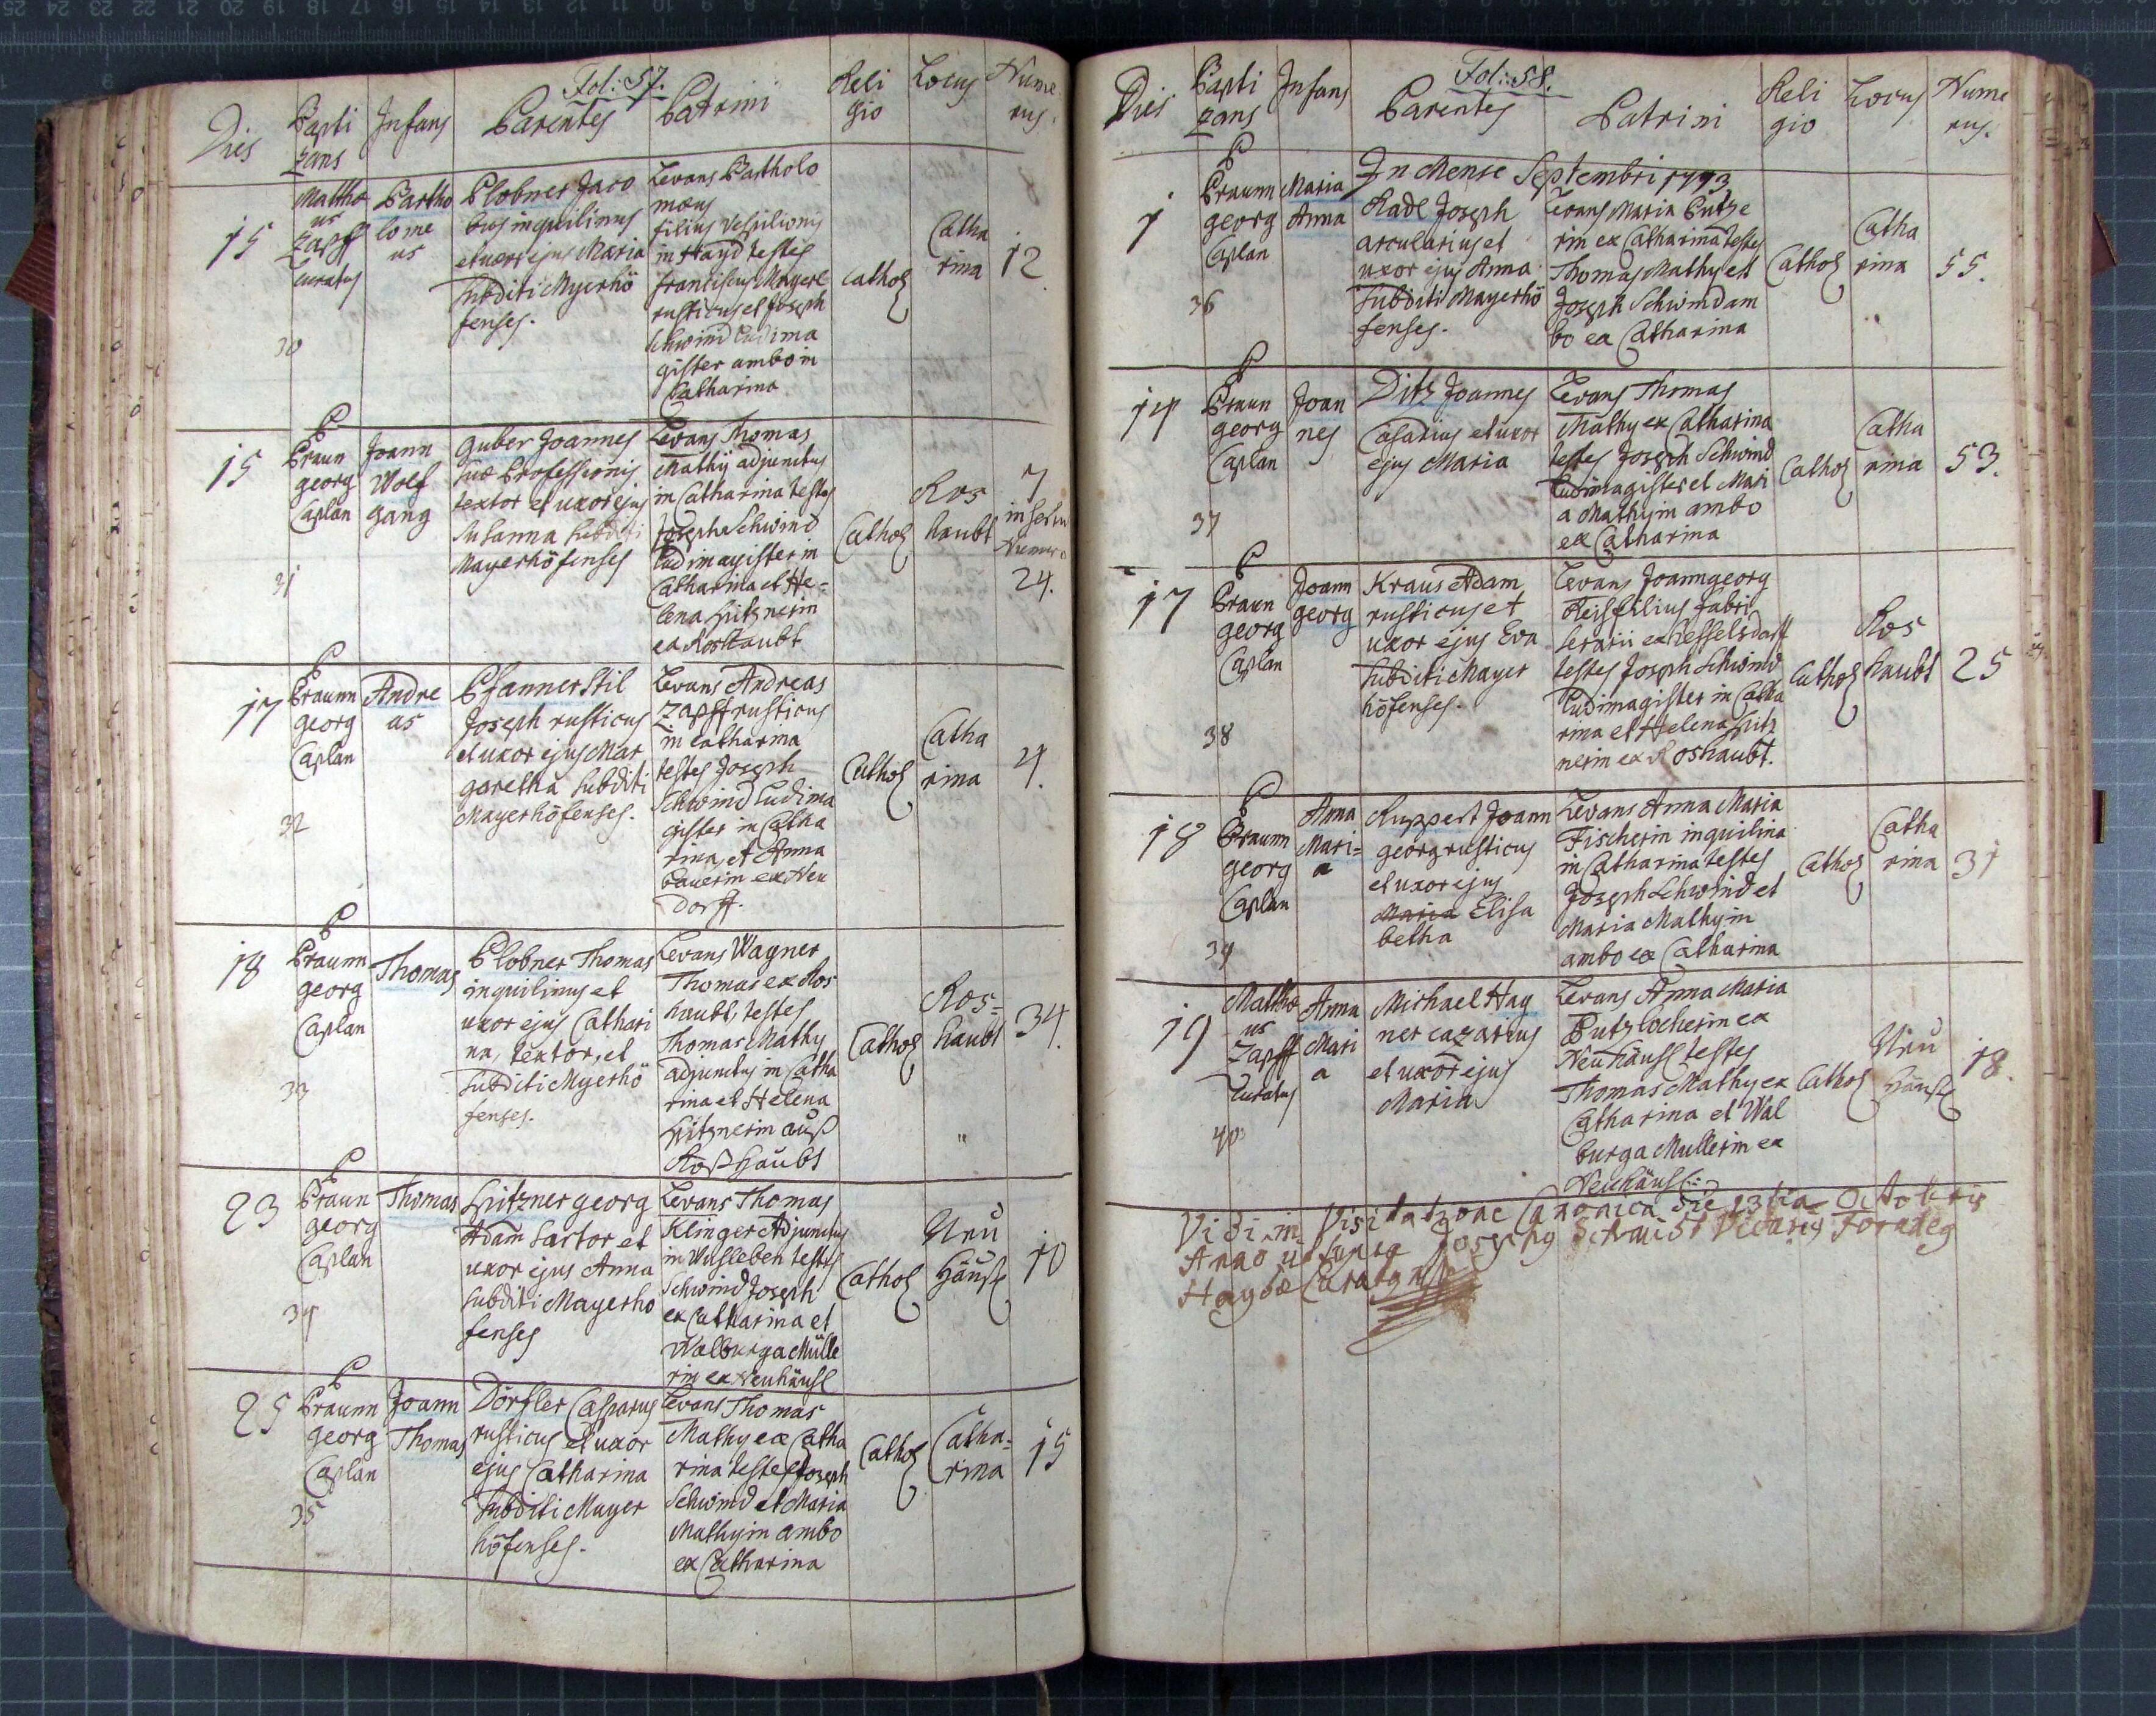 Fol: 57.
Dies Bapti zans Infans Parentes Patrini Reli gio Locus Nume rus.
15
Matthæ
us
Zapff
Curatus
30
Bartho
lome
us
Plobner Jaco
bus inquilinus
et uxor ejus Maria
subditi Myerhö
fenses.
Levans Bartholo
mæus
filius Vespilionis
in Hayd testes
Franciscus Mayerl
rusticus et Joseph
Schwind Ludima
gister ambo in
Catharina
Cathol
Catha
rina
12
15
P
Braun
georg
Caplan
31
Joann
Wolf
gang
Guber Joannes
suæ Professionis
textor et uxor ejus
Susanna subditi
Mayerhöfenses
Levans Thomas
Mathÿ adjunctus
in Catharina testes
Joseph Schwind
Ludimagister in
Catharina et He=
lena Spitznerin
ex Roshaubt
Cathol
Ros
haubt
7
24.
17
P
Braunn
georg
Caplan
32
Andre
as
Pfannerstil
Joseph rusticus
et uxor ejus Mar
garetha subditi
Mayerhöfenses.
Levans Andreas
Zapff rusticus
in Catharina
testes Joseph
Schwind Ludima
gister in Catha
rina, et Anna
Bauerin ex Neu
dorff.
Cathol
Catha
rina
4.
18
P
Braunn
georg
Caplan
33
Thomas
Plobner Thomas
inquilinus et
uxor ejus Cathari
na, textor, et
subditi Myerhö
fenses.
Levans Wagner
Thomas ex Ros
haubt, testes
Thomas Mathy
adjunctus in Catha
rina et Helena
Spitznerin auß
Roßhaubt
Cathol
Ros=
haubt
34.
23
P
Braun
georg
Caplan
34
Thomas
Spitzner georg
Adam Sartor et
uxor ejus Anna
subditi Mayerhö
fenses
Levans Thomas
Klinger Adjunctus
in Wusleben testes
Schwind Joseph
ex Catharina et
Walburga Mülle
rin ex Neuhäusl
Cathol
Neu
häusl
10
25
P
Braunn
georg
Caplan
35
Joann
Thomas
Dörfler Casparus
rusticus et uxor
ejus Catharina
subditi Mayer
höfenses.
Levans Thomas
Mathy ex Catha
rina testes Joseph
Schwind et Maria
Mathyin ambo
ex Catharina
Cathol
Catha=
rina
15
Fol: 58.
Dies Bapti zans Infans Parentes Patrini Reli gio Locus Nume rus.
In Mense Septembri 1793
1
P
Braunn
georg
Caplan
36
Maria
Anna
Rade Joseph
arcularius et
uxor ejus Anna
subditi Mayerhö
fenses.
Levans Maria Putze
rin ex Catharina testes
Thomas Mathy et
Joseph Schwind am
bo ex Catharina
Cathol
Catha
rina
55.
14
P
Braun
georg
Caplan
37
Joan
nes
Ditz Joannes
Casarius et uxor
ejus Maria
Levans Thomas
Mathy ex Catharina
testes Joseph Schwind
Ludimagister et Mari
a Mathyin ambo
ex Catharina
Cathol
Catha
rina
53.
17
P
Braun
georg
Caplan
38
Joann
georg
Kraus Adam
rusticus et
uxor ejus Eva
subditi Mayer
höfenses.
Levans Joanngeorg
Reis filius fabri
serarii ex Lesselsdorff
testes Joseph Schwind
Ludimagister in Catha
rina et Helena Spitz
nerin ex Roshaubt.
Cathol
Ros
haubt
25
18
P
Braunn
georg
Caplan
39
Anna
Mari=
a
Ruppert Joann
georg rusticus
et uxor ejus
Maria Elisa
betha
Levans Anna Maria
Fischerin inquilina
in Catharina testes
Joseph Schwind et
Maria Mathyin
ambo ex Catharina
Cathol
Catha
rina
31
19
Matthæ
us
Zapff
Curatus
40
Anna
Mari
a
Michael Hag
ner cazarius
et uxor ejus
Maria
Levans Anna Maria
Putzlocherin ex
Neuhäusl testes
Thomas Mathy ex
Catharina et Wal
burga Mullerin ex
Neuhäusl
Cathol
Neu
häusl
18.
Vidi in Visitatione Canonica die 23tia Octobris
Anno ut supra Josephus Vicarius Foraneus
Haydæ